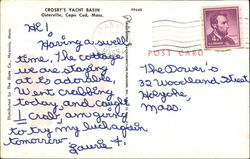 CROSBY'S YACHT BASIN
Osterville, Cape Cod, Mass.
99648
POST CARD
Hi!
Having a swell
time, The cottage
we are staying
at is adorable.
Went crabbing
today and caught
1 crab, am going
to try my luck again
tomorrow.
Laurie
The Dower's
32 Woodland Street
Holyoke,
Mass.